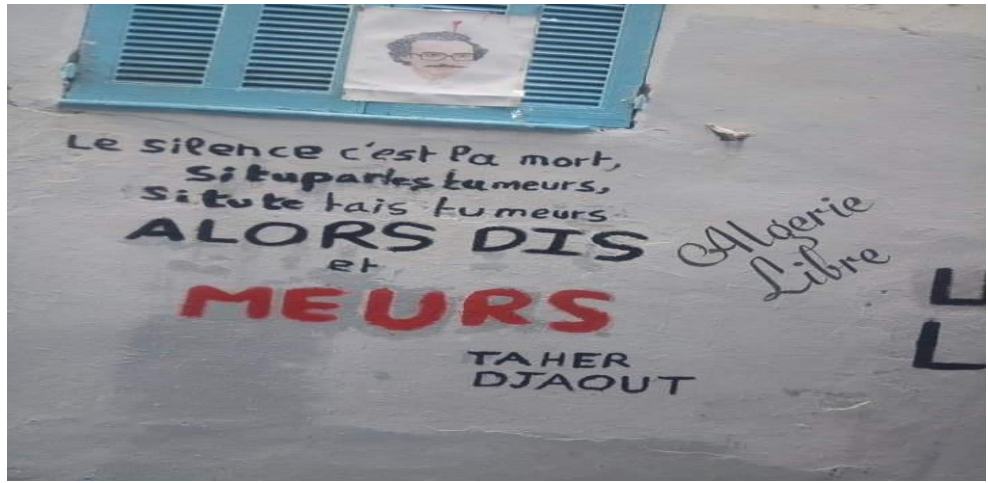 Le silence c'est la mort,
Si tu parles tu meurs,
Si tu te tais tu meurs
ALORS DIS
et
MEURS
TAHER
DJAOUT
Algerie
Libre
L